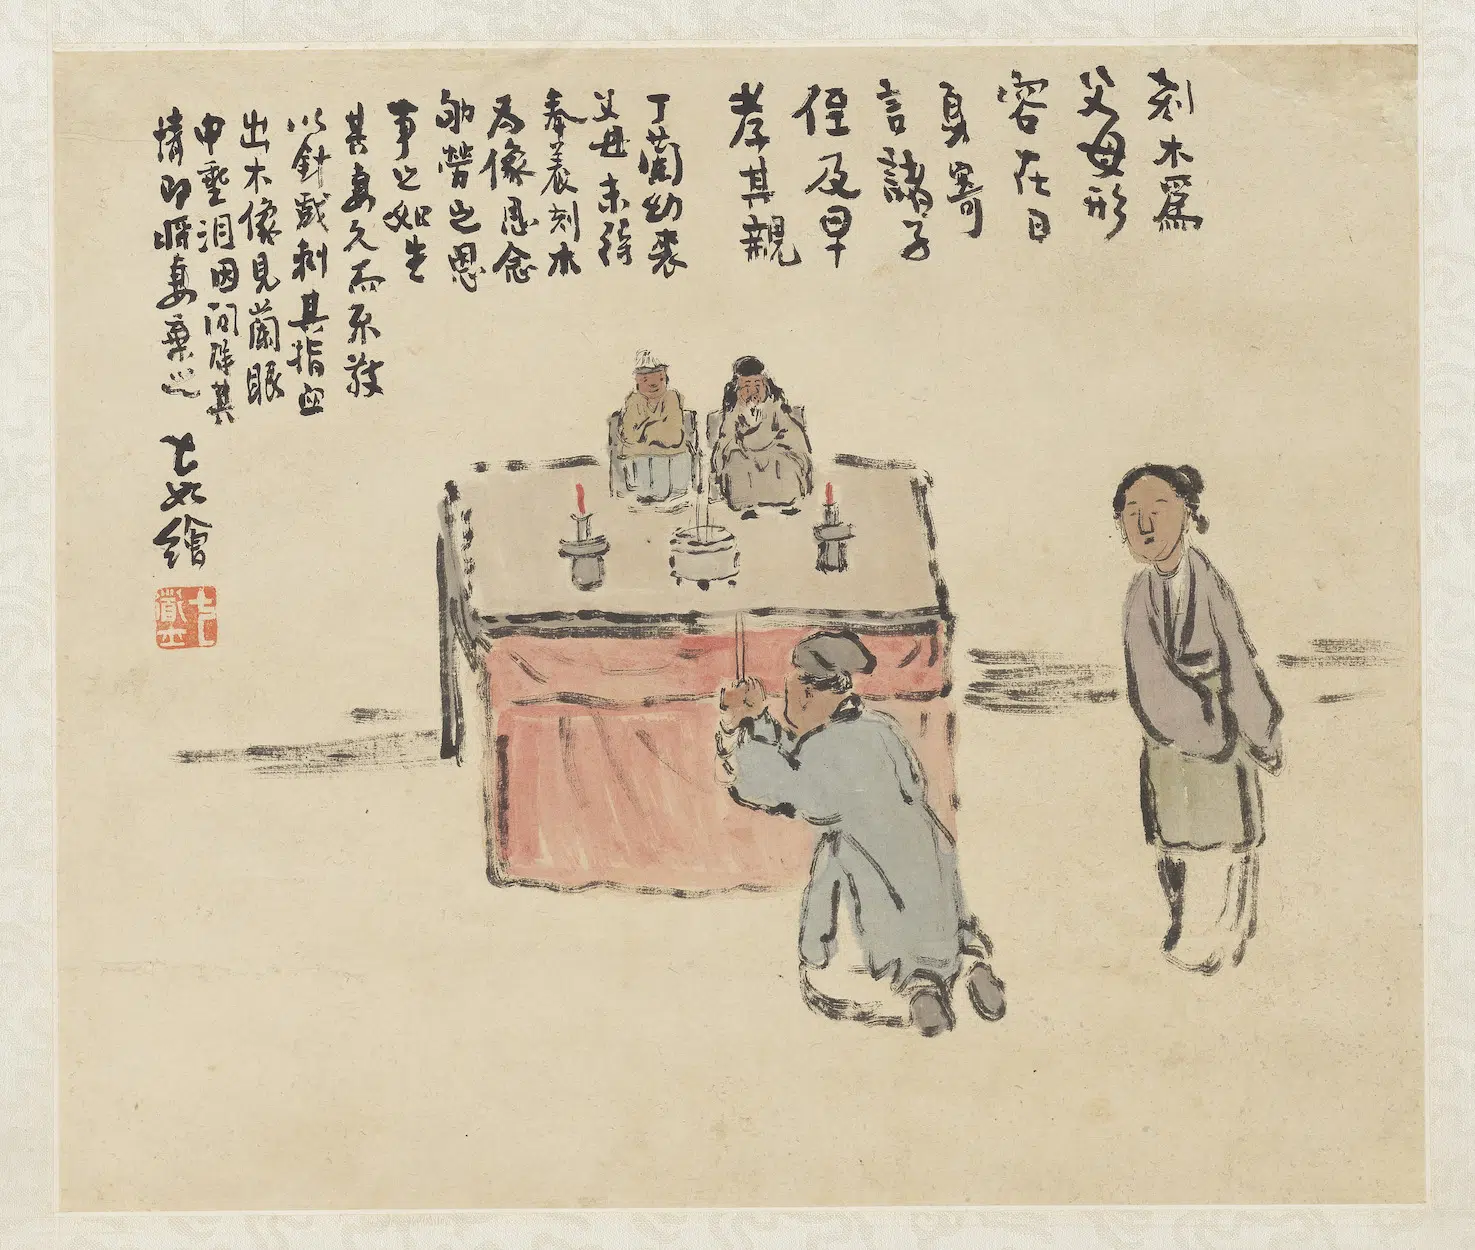 刻木爲
父母形
容在日
身寄
言諸子
侄及早
孝其親
丁蘭幼喪
父母未得
奉養刻木
為像思念
劬勞之恩
事之如生
其妻久而不敬
以針戲刺其指血
出木像見蘭眼
中垂泪因問得其
情即將妻棄之
七如繪
七道士